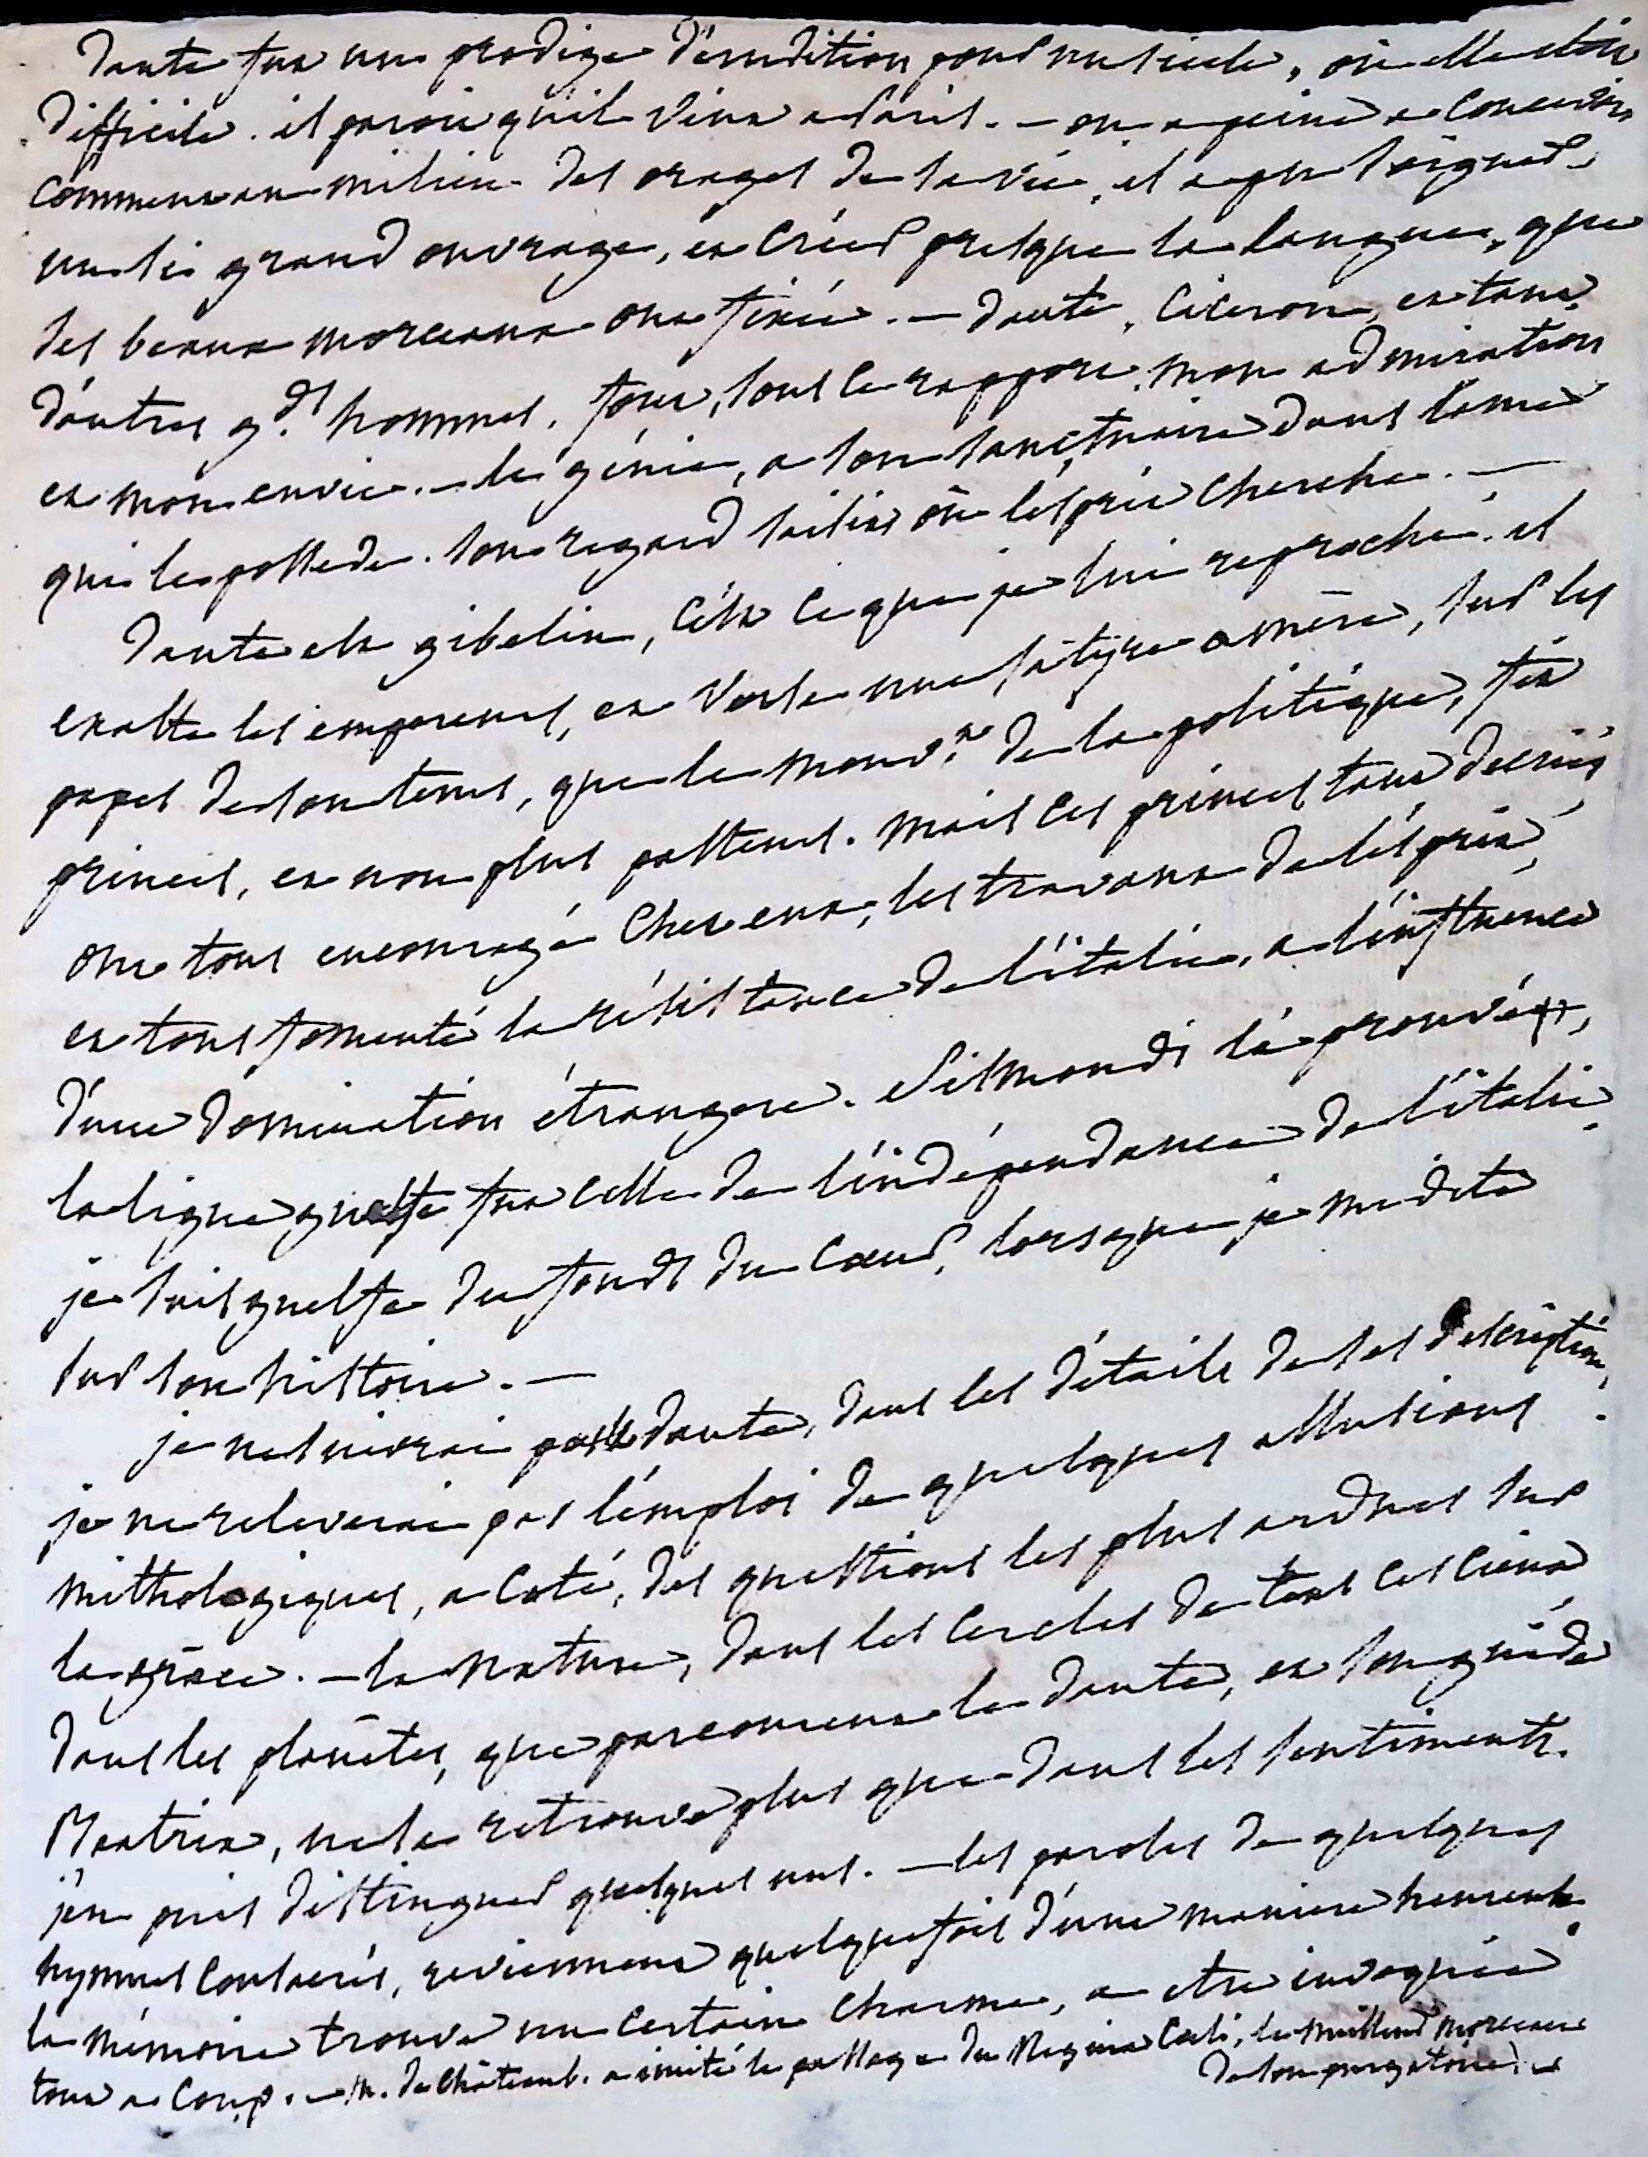 Dante fut un prodige d'erudition pour un siecle, où elle étoit
difficile. il paroit qu'il vint a Paris. — on a peine a concevoir
comment au milieu des orages de sa vie, il a pu soigner
un si grand ouvrage, et créer presque la langue, que
ses beaux morceaux ont fixée. — Dante, Ciceron, et tant
d'autres gds. hommes, font, sous ce rapport, mon admiration
et mon envie. — le génie, a son sanctuaire dans l'ame
qui le possede. son regard saisit où l'esprit cherche. —
Dante est gibelin, c'est ce que je lui reproche. il
exalte les empereurs, et verse une satyre amère, sur les
papes de son tems, que le mouvt. de la politique, fit
princes, et non plus pasteurs. mais ces princes tant decriés
ont tous encouragé chez eux, les travaux de l'esprit,
et tous fomenté la résistance de l'italie, a l'influence
d'une domination étrangere. Sismondi l'a prouvé,
la ligue guelfe fut celle de l'indépendance de l'italie.
je suis guelfe du fonds du coeur, lorsque je medite
sur son histoire. —
je ne suivrai pas le dante, dans les détails de ses descriptions,
je ne releverai pas l'emploi de quelques allusions
mithologiques, a coté, des questions les plus ardues sur
la grâce. — la nature, dans les cercles de tous ces cieux
dans les planètes, que parcourent le dante, et son guide
Beatrix, ne se retrouve plus que dans les sentiments.
j'en puis distinguer quelques uns. — les paroles de quelques
hymnes consacrés, reviennent quelquefois d'une maniere heureuse.
la mémoire trouve un certain charme, a etre invoquée
tout a coup. — M. de Châteaub. a imité le passage du Regina Coeli, le meilleur morceau
de son purgatoire. —